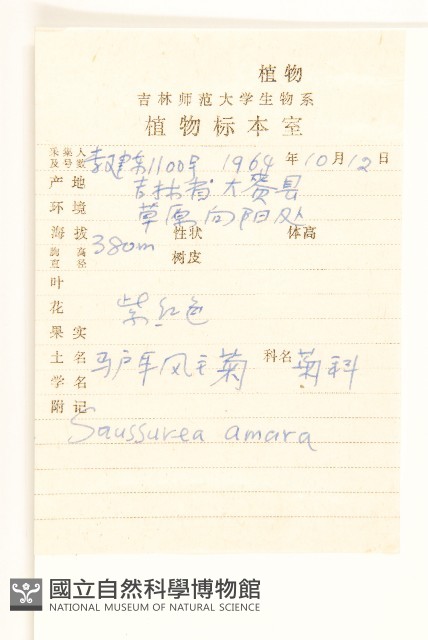 植物
吉林师范大学生物系
植物标本室
采集人及号数 李建东1100号 1964年10月12日
产地 吉林省大赉县
环境 草原向阳处
海拔 380m 性状 体高
胸高直径 树皮
叶
花 紫红色
果实
土名 驴耳风毛菊 科名 菊科
学名
附记
Saussurea amara
國立自然科學博物館
NATIONAL MUSEUM OF NATURAL SCIENCE